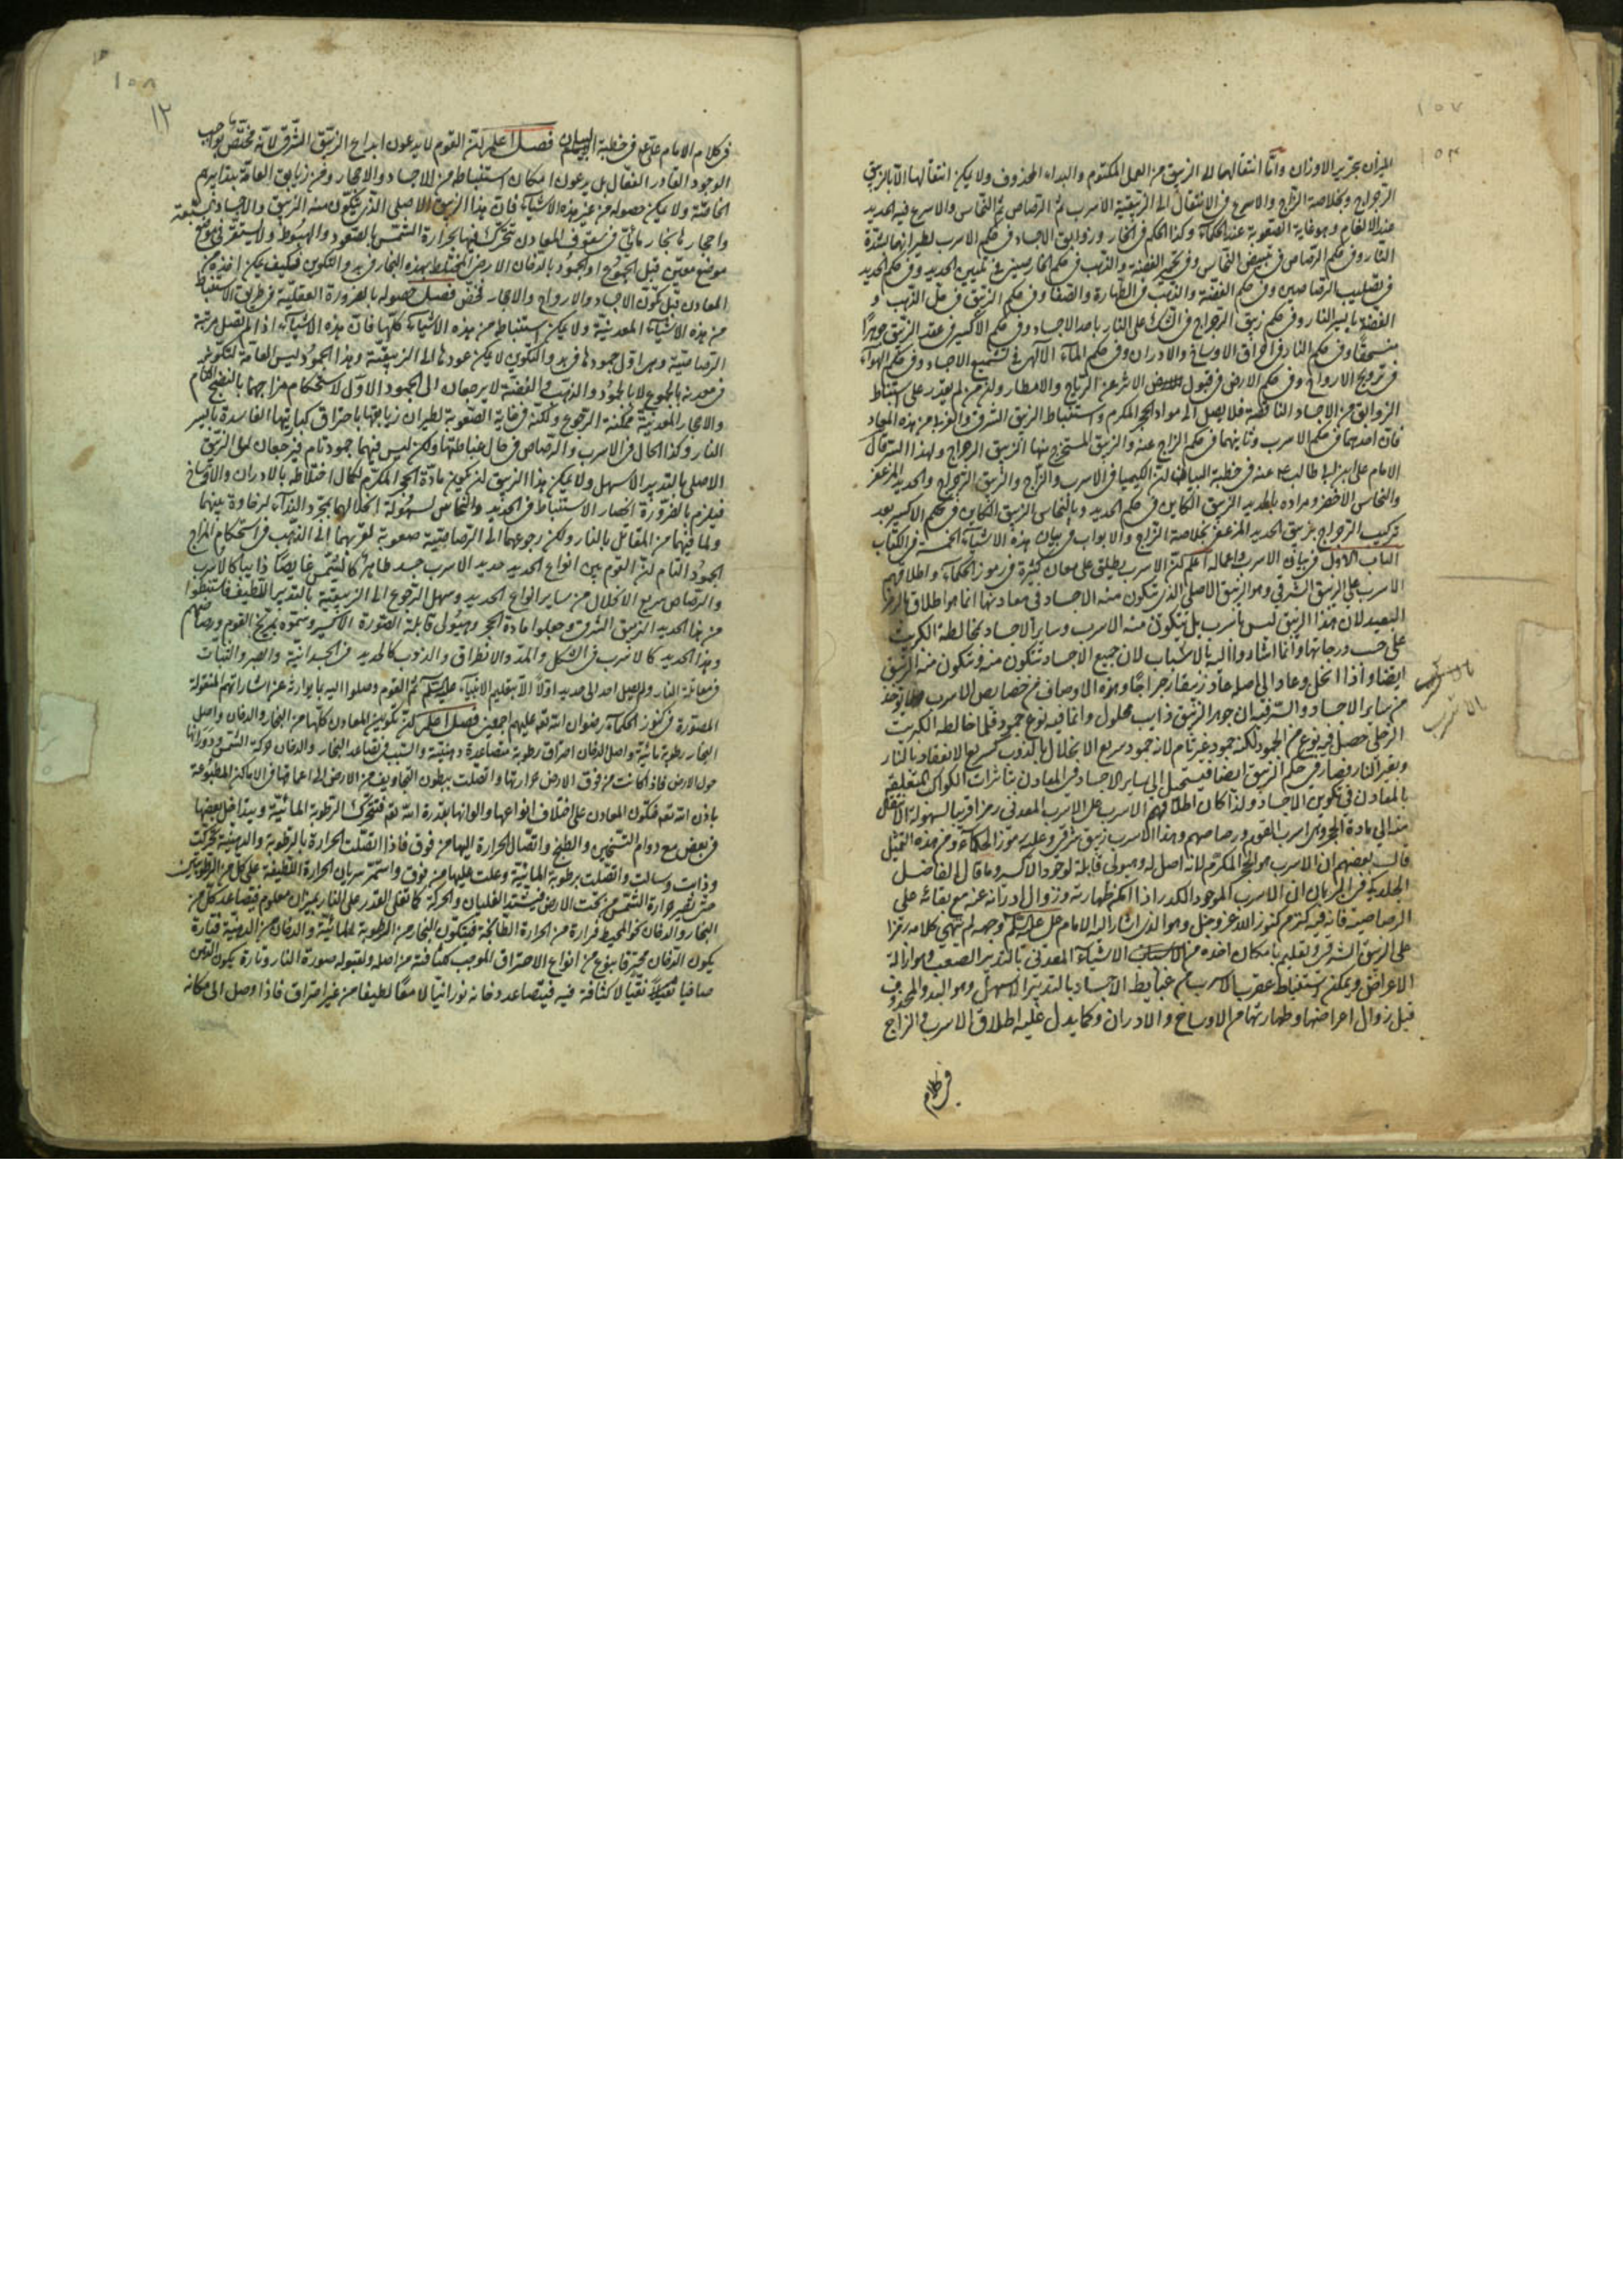 ١٠٧
١٠٣
الميزان بتحرير الاوزان وامّا انتقالها الى الزيبق من العمل المكتوم والبداء المحذوف ولا يمكن انتقالها الا بالزيبق
الزجاج وبخلاصة الزاج والاسرع فى الانتقال الى الزيبقية الاسرب ثم الرصاص ثم النحاس والاسرع فيه الحديد
عند الالغام وهو غاية الصعوبة عند الحكماء وكذا الحكم فى البخار وزوابق الاجساد فى حكم الاسرب لطيرانها بشدة
النار وفى حكم الرصاص فى تبييض النحاس وفى تحمير الفضة والذهب فى حكم الخارصينى فى تليين الحديد وفى حكم الحديد
فى تصليب الرصاصين وفى حكم الفضة والذهب فى الطهارة والصفا وفى حكم الزيبق فى حل الذهب و
الفضة بايسر النار وفى حكم زيبق الزجاج فى على النار باحد الاجساد وفى حكم الاكسير فى عقد الزيبق جوهرًا
منسحقًا وفى حكم النار فى احراق الاوساخ والادران وفى حكم الماء الالهى فى تشميع الاجساد وفى حكم الهواء
فى ترويح الارواح وفى حكم الارض فى قبول الاثر عن الرياح والامطار ولذا من لم يقدر على استنباط
الزوابق من الاجساد الناقصة فلا يصل الى مواد الحجر المكرم واستنباط الزيبق الشرقى والغربى من هذه المعادن
فان احدهما فى حكم الاسرب وثانيهما فى حكم الزاج عنه والزيبق المستخرج منها الزيبق الرجراج ولهذا السر قال
الامام على ابن ابى طالب عم عنه فى خطبة البيان ان الكيميا فى الاسرب والزاج والزيبق الرجراج والحديد المزعفر
والنحاس الاخضر ومراده بالحديد الزيبق الكاين فى حكم الحديد وبالنحاس الزيبق الكاين فى حكم الاكسير بعد
تركيب الرجراج بزيبق الحديد المزعفر بخلاصة الزاج والابواب فى بيان هذه الاشياء الخمسة فى الكتاب
الباب الاول فى بيان الاسرب واعماله اعلم ان الاسرب يطلق على معان كثيرة فى رموز الحكماء واطلاقهم
الاسرب على الزيبق الشرقى وهو الزيبق الاصلى الذى تتكون منه الاجساد فى معادنها انما هو اطلاق بالرمز
البعيد لان هذا الزيبق ليس باسرب بل تتكون منه الاسرب وساير الاجساد بمخالطة الكبريت
على حسب درجاتها وانما اشاروا اليه بالاسباب لان جميع الاجساد تتكون منه وتتكون منه الزيبق
ايضا واذا انحل وعاد الى اصله عاد زيبقا رجراجًا وهذه الاوصاف من خصايص الاسرب يوخذ
من ساير الاجساد والسر فيه ان جوهر الزيبق ذايب محلول وانما فيه نوع جمود فلما خالطه الكبريت
الزحلى حصل فيه نوع من الجمود لكنه جمود غير تام لانه جمود سريع الانحلال بالذوب سريع الانعقاد بالنار
وبغير النار فصار فى حكم الزيبق ايضا فيستحيل الى ساير الاجساد فى المعادن بتاثيرات الكواكب المتعلقة
بالمعادن فى تكوين الاجساد ولذا كان اطلاقهم الاسرب على الاسرب المعدنى رمزا قريبا لسهولة الانتقال
منه الى مادة الحجر وهى اسرب القوم ورصاصهم وهذا الاسرب زيبق شرقى وعليه رموز الحكماء ومن هذه التمثيل
قال بعضهم ان الاسرب هو الحجر المكرم لانه اصل له وهيولى قابلة لوجود الاكسير وما قال الفاضل
الجلدكى فى البرهان ان الاسرب الموجود الكدر اذا امكن طهارته وزوال ادرانه عنه مع بقائه على
الرصاصية فانه فيه كنز من كنوز الله عز وجل وهو الذى اشار اليه الامام على عليه السلم وجهه انتهى كلامه رمزا
على الزيبق الشرقى وتعليم بامكان اخذه من الاشياء المعدنى بالتدبير الصعب وهو ازالة
الاعراض ويمكن استنباط عقرب الاسرب من غبايط الاجساد بالتدبير الاسهل وهو البدو المحذوف
قبل زوال اعراضها وطهارتها من الاوساخ والادران وكما يدل عليه اطلاق الاسرب والزاج
فى كلام
١٠٨
١٢
فى كلام الامام على عم فى خطبة البيان فصل اعلم ان القوم لا يدعون ابداع الزيبق الشرقى لانه مختص بواجب
الوجود القادر الفعال بل يدعون امكان استنباطه من الاجساد والاحجار ومن زيابق العامة بتدابيرهم
الخاصة ولا يمكن حصوله من غير هذه الاشياء فان هذا الزيبق الاصلى الذى يتكون منه الزيبق والاجساد السبعة
واحجارها بخار مائى فى سقوف المعادن تتحرك فيها بحرارة الشمس بالصعود والهبوط ولا يستقر فى موضع
موضع معين قبل الجموع او الجمود بالدخان الارضى المختلط بهذه البخار فى بدو التكوين فكيف يمكن اخذه من
المعادن قبل تكون الاجساد والارواح والاحجار فحصل حصوله بالضرورة العقلية فى طريق الاستنباط
من هذه الاشياء المعدنية ولا يمكن استنباط من هذه الاشياء كلها فان هذه الاشياء اذا لم تصل مرتبة
الرصاصية وهى اول جمودها فى بدو التكوين لا يمكن عودها الى الزيبقية وهذا الجمود ليس العامة لتكونه
فى معدنه بالجموع لا بالجمود والذهب والفضة لا يرجعان الى الجمود الاول لاستحكام مزاجهما بالنضج التام
والاحجار المعدنية ممكنة الرجوع ولكنه فى غاية الصعوبة لطيران زيابقها باحتراق كباريتها الفاسدة بايسر
النار وكذا الحال فى الاسرب والرصاص فى حال غباطتها ولكن ليس فيهما جمود تام فيرجعان الى الزيبق
الاصلى بالتدبير الاسهل ولا يمكن هذا الزيبق ان يكون مادة الحجر المكرم لكمال اختلاطه بالادران والاوساخ
فيلزم بالضرورة انحصار الاستنباط فى الحديد والنحاس لسهولة انحلالها بمجرد النداء لرخاوة بينهما
ولما فيهما من المقابل بالنار ولكن رجوعهما الى الرصاصية صعوبة لقربهما الى الذهب فى استحكام المزاج
الجمود التام ان القوم بين انواع الحديد حديد الاسرب جسد طاهرًا كالشمس غايصًا ذايبا كالاسرب
والرصاص سريع الانحلال من ساير انواع الحديد وسهل الرجوع الى الزيبقية بالتدبير اللطيف فاستنبطوا
من هذا الحديد الزيبق الشرقى وجعلوا مادة الحجر وهيولى قابلة الصورة الاكسير وسموه بمريخ القوم ورصاصهم
وهذا الحديد كالاسرب فى الشكل والمد والانطراق والذوب كالحديد فى الجسدانية والصبر والثبات
فى مقاتلة النار ولم يصل احد الى حديد اولًا الا بتعليم الانبياء عليهم السلم ثم القوم وصلوا اليه بما يوارثه عن اشاراتهم المنقولة
المستورة فى كنوز الحكماء رضوان الله تعه عليهم اجمعين فصل اعلم ان تكوين المعادن كلها من البخار والدخان واصل
البخار رطوبة مائية واصل الدخان احتراق رطوبة متصاعدة دهنية والسبب فى تصاعد البخار والدخان حركة الشمس ودورانها
حول الارض فاذا كانت من فوق الارض حرارتها واتصلت ببطون التجاويف من الارض الى اعماقها فى الاماكن المطبوعة
باذن الله تعه فتكون المعادن على اختلاف انواعها والوانها بقدرة الله تعه فتتحرك الرطوبة المائية ويتداخل بعضها
فى بعض مع دوام التسخين والطبخ واتصال الحرارة اليها من فوق فاذا اتصلت الحرارة بالرطوبة والدهنية تحركت
وذابت وسالت واتصلت برطوبة المائية وعلت عليها من فوق واستمر سريان الحرارة اللطيفة على كل من الرطوبتين
حتى تصير حرارة الشمس من تحت الارض فيشتد الغليان والحركة كما تغلى القدر على النار بميزان معلوم فيتصاعد كل من
البخار والدخان نحو المحيط فرارة من الحرارة الطابخة فيتكون البخار من الرطوبة المائية والدخان من الدهنية فتارة
يكون الدخان محترقا بنوع من انواع الاحتراق الموجب كثافته من اصله ولقبوله صورة النار وتارة يكون الدهن
صافيا ثقيلًا نقيا لا كثافة فيه فيتصاعد دخانه نورانيا لامعًا لطيفا من غير احتراق فاذا وصل الى مكانه